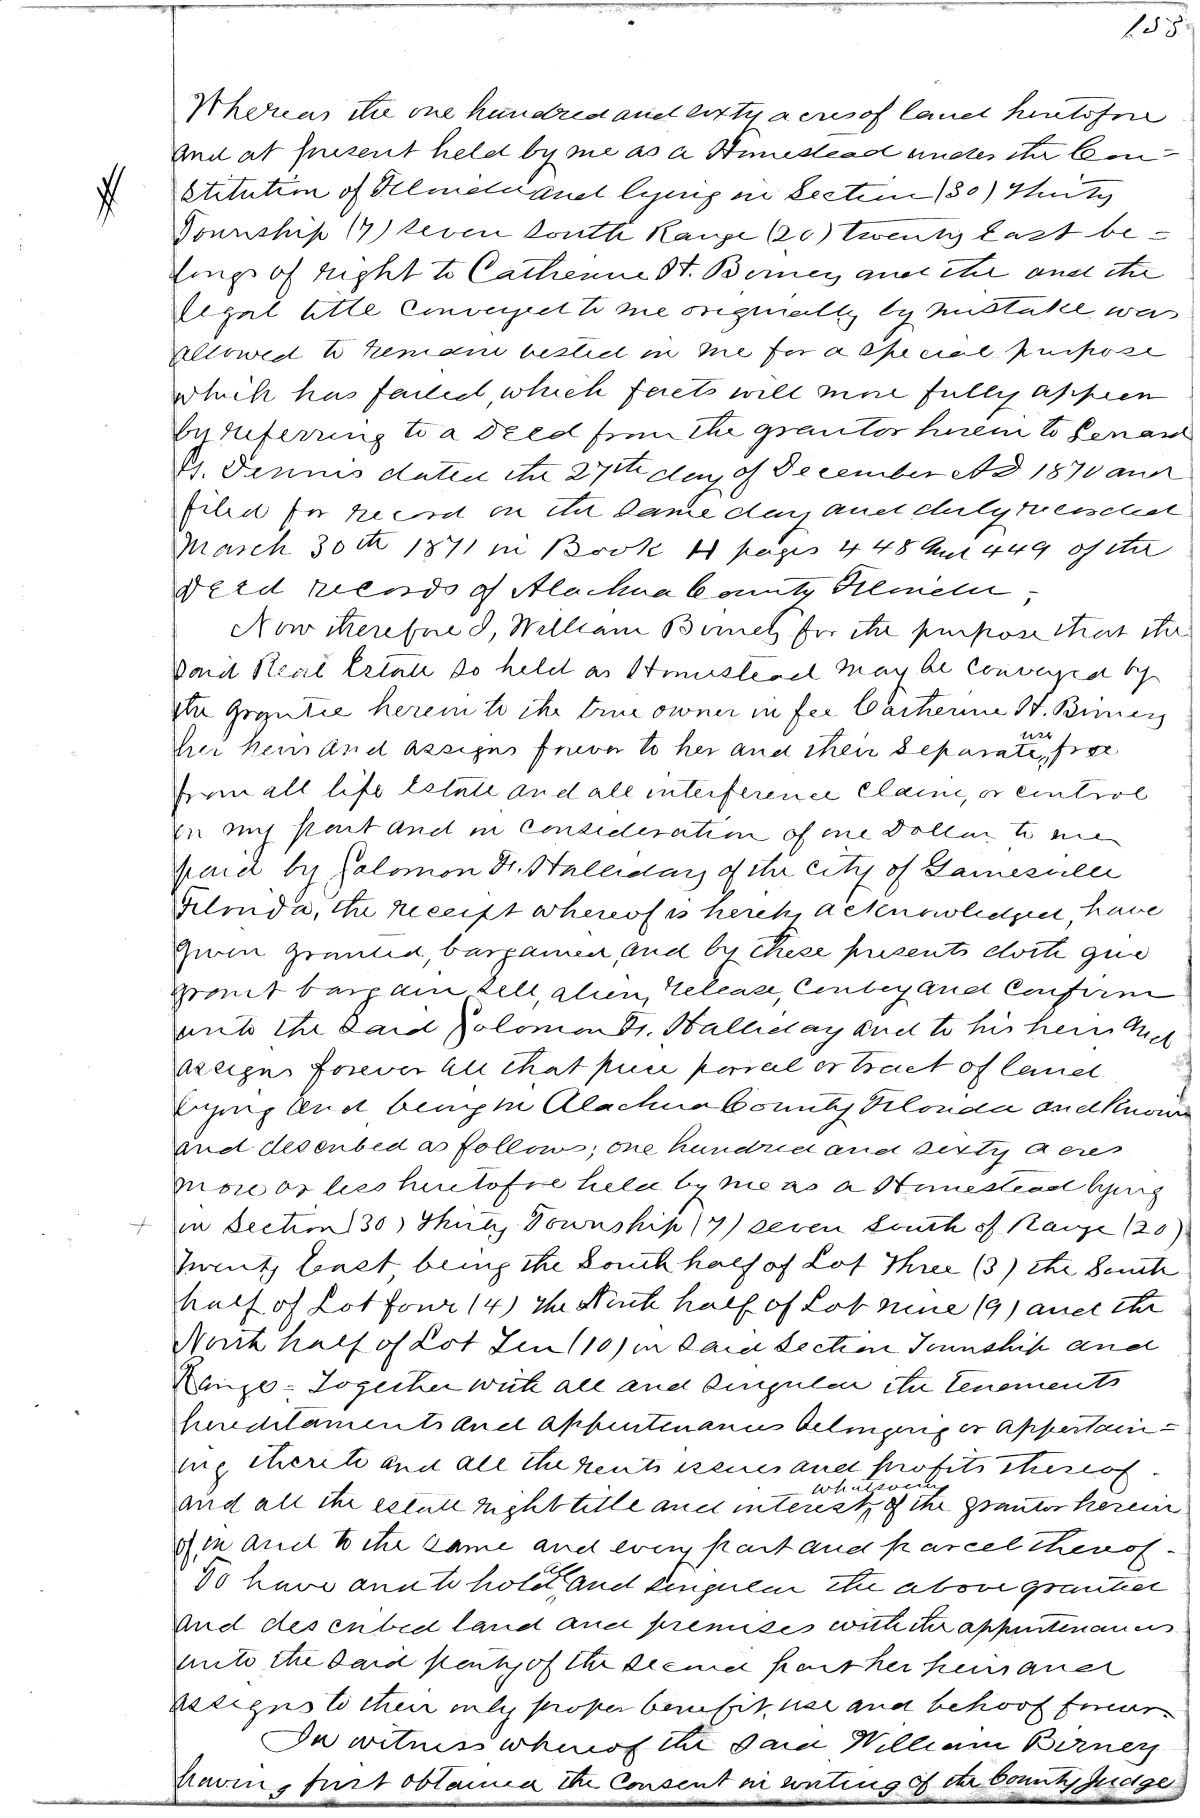 155
Whereas the one hundred and sixty acres of land heretofore
and at present held by me as a Homestead under the Con=
stitution of Florida and lying in Section (30) Thirty
Township (7) seven South Range (20) twenty East be=
longs of right to Catherine H. Birney and the and the
legal title conveyed to me originally by mistake was
allowed to remain vested in me for a special purpose
which has failed, which facts will more fully appear
by referring to a Deed from the grantor herein to Lenard
G. Dennis dated the 27th day of December A.D. 1870 and
filed for record on the same day and duly recorded
March 30th 1871 in Book H pages 448 and 449 of the
Deed records of Alachua County Florida;
Now therefore I, William Birney for the purpose that the
said Real Estate so held as Homestead may be conveyed by
the Grantee herein to the true owner in fee Catherine H. Birney
her heirs and assigns forever to her and their separate use free
from all life Estate and all interference claim, or control
on my part and in consideration of one Dollar to me
paid by Solomon F. Halliday of the city of Gainesville
Florida, the receipt whereof is hereby acknowledged, have
given granted, bargained, and by these presents doth give
grant bargain sell, alien, release, convey and confirm
unto the said Solomon F. Halliday and to his heirs and
assigns forever all that piece parcel or tract of land
lying and being in Alachua County Florida and known
and described as follows; one hundred and sixty acres
more or less heretofore held by me as a Homestead lying
in Section (30) Thirty Township (7) seven South of Range (20)
Twenty East, being the South half of Lot Three (3) the South
half of Lot four (4) the North half of Lot nine (9) and the
North half of Lot Ten (10) in said Section Township and
Range = Together with all and singular the tenements
hereditaments and appurtenances belonging or appertain=
ing thereto and all the rents issues and profits thereof.
and all the estate right title and interest whatsoever of the grantor herein
of, in and to the same and every part and parcel thereof.
To have and to hold all and singular the above granted
and described land and premises with the appurtenances
unto the said party of the second part her heirs and
assigns to their only proper benefit, use and behoof forever.
In witness whereof the said William Birney
having first obtained the consent in writing of the County Judge